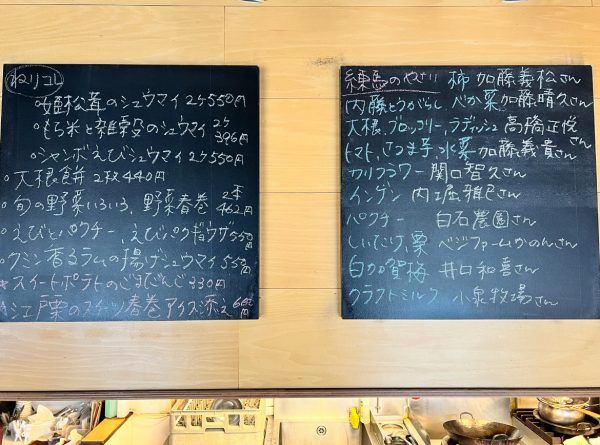 ねりコレ
・姫松茸のシュウマイ 2ケ550円
・もち米と雑穀のシュウマイ 2ケ396円
・ジャンボえびシュウマイ 2ケ550円
・大根餅 2枚440円
・旬の野菜いろいろ、野菜春巻 2本462円
・えびとパクチー、えびパクギョウザ550円
・クミン香るラムの揚げシュウマイ 550円
★スイートポテトのごまだんご330円
★江戸栗のスイーツ春巻アイス添え 660円
練馬のやさい 柿 加藤義松さん
内藤とうがらし、べか菜 加藤晴久さん
大根、ブロッコリー、ラディッシュ 高橋正悦さん
トマト、さつま芋、水菜 加藤義貴さん
カリフラワー 関口智久さん
インゲン 内堀雅巳さん
パクチー 白石農園さん
しいたけ、栗 ベジファームかのんさん
白加賀梅 井口和喜さん
クラフトミルク 小泉牧場さん